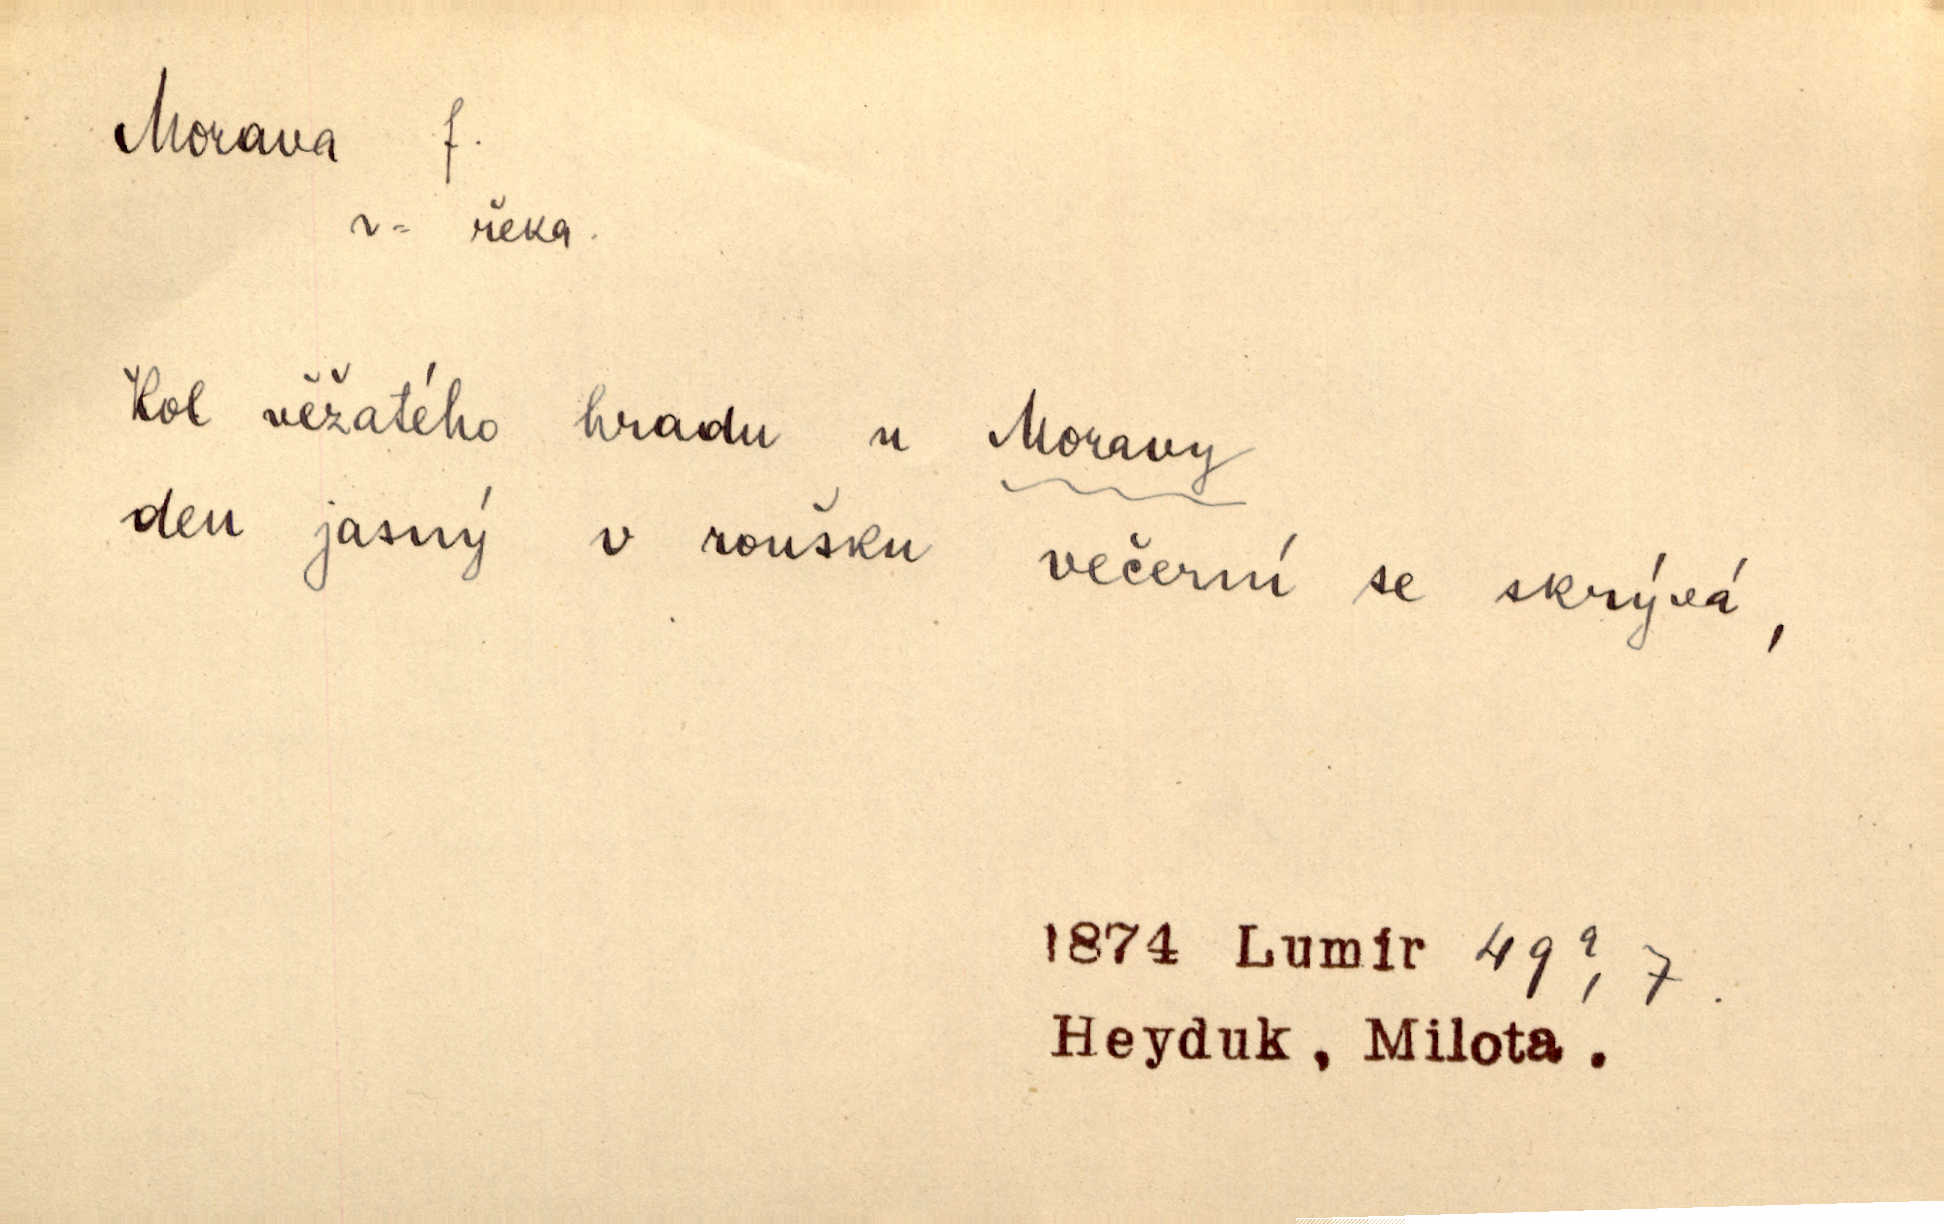 Morava f.
v= řeka.
Kol věžatého hradu u Moravy
den jasný v roušku večerní se skrývá,
1874 Lumír 49ª, 7.
Heyduk, Milota.